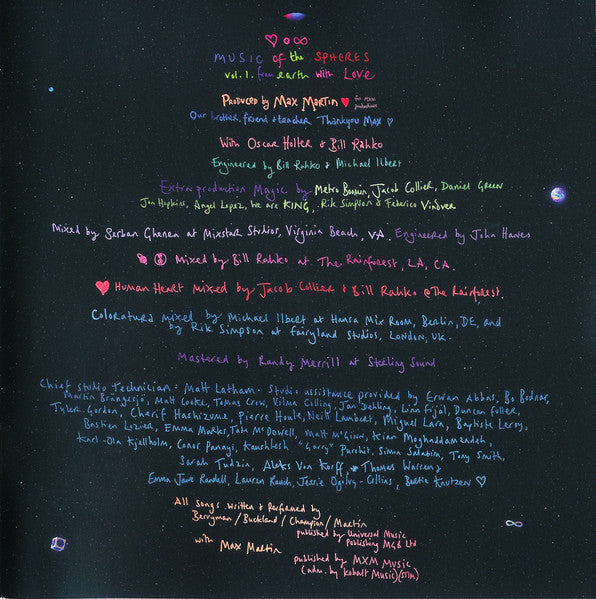 MUSIC of the SPHERES
vol. 1. from earth with Love
PRODUCED by MAX MARTIN ♥ for MXM productions
Our brother, friend & teacher Thankyou Max ♡
With Oscar Holter & Bill Rahko
Engineered by Bill Rahko & Michael Ilbert
Extra production Magic by Metro Boomin, Jacob Collier, Daniel Green
Jon Hopkins, Angel Lopez, We are KING, Rik Simpson & Federico Vindver
Mixed by Serban Ghenea at Mixstar Studios, Virginia Beach, VA. Engineered by John Hanes
Mixed by Bill Rahko at The Rainforest, LA, CA.
♥ Human Heart mixed by Jacob Collier & Bill Rahko @ The Rainforest.
Coloratura mixed by Michael Ilbert at Hansa Mix Room, Berlin, DE, and
by Rik Simpson at fairyland studios, London, UK.
Mastered by Randy Merrill at Sterling Sound
Chief studio Technician: Matt Latham. Studio assistance provided by Erwan Abbas, Bo Bodnar,
Martin Brängersjö, Matt Cooke, Tomas Crow, Vilma Colling, Jan Dehling, Linn Fijal, Duncan Fuller,
Tyler Gordon, Cherif Hashizume, Pierre Houle, Neill Lambert, Miguel Lara, Baptiste Leroy,
Bastien Lozier, Emma Marks, Tate McDowell, Matt McGinn, Kian Moghaddamzadeh,
Karl-Ola Kjellholm, Conor Panayi, Kaushlesh "Garry" Purohit, Simon Salabim, Tony Smith,
Sarah Tudzin, Aleks Von Korff, Thomas Warren &
Emma Jane Randell, Lauren Rauch, Jessie Ogilvy-Collins, Bertie Knutzen ♡
All songs written & Performed by
Berryman / Buckland / Champion / Martin
published by Universal Music
Publishing MGB Ltd
with Max Martin
published by MXM Music
(adm. by Kobalt Music)(STIM)